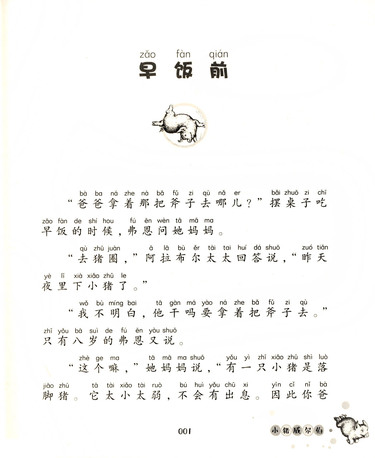 zǎo fàn qián
早饭前
bà ba ná zhe nà bǎ fǔ zi qù nǎ er bǎi zhuō zi chī
“爸爸拿着那把斧子去哪儿？”摆桌子吃
zǎo fàn de shí hou fú ēn wèn tā mā ma
早饭的时候，弗恩问她妈妈。
qù zhū juàn ā lā bù ěr tài tai huí dá shuō zuó tiān
“去猪圈，”阿拉布尔太太回答说，“昨天
yè lǐ xià xiǎo zhū le
夜里下小猪了。”
wǒ bù míng bai tā gàn má yào ná zhe bǎ fǔ zi qù
“我不明白，他干吗要拿着把斧子去。”
zhǐ yǒu bā suì de fú ēn yòu shuō
只有八岁的弗恩又说。
zhè ge ma tā mā ma shuō yǒu yì zhī xiǎo zhū shì luò
“这个嘛，”她妈妈说，“有一只小猪是落
jiǎo zhū tā tài xiǎo tài ruò bú huì yǒu chū xi yīn cǐ nǐ bà
脚猪。它太小太弱，不会有出息。因此你爸
001
小猪威尔伯